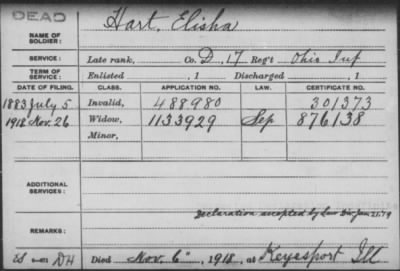 DEAD
NAME OF SOLDIER: Hart, Elisha
SERVICE: Late rank, Co. D, 17 Reg't Ohio Inf
TERM OF SERVICE: Enlisted , 1 Discharged , 1
DATE OF FILING. CLASS. APPLICATION NO. LAW. CERTIFICATE NO.
1883 July 5 Invalid, 488980 301373
1918 Nov. 26 Widow, 1133929 Sep 876138
Minor,
ADDITIONAL SERVICES:
Declaration accepted by Law Div Jan 21.79
REMARKS:
DH Died Nov. 6", 1918, at Keyesport Ill